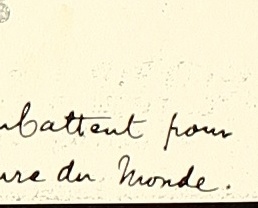 mbattent pour
ure du Monde.